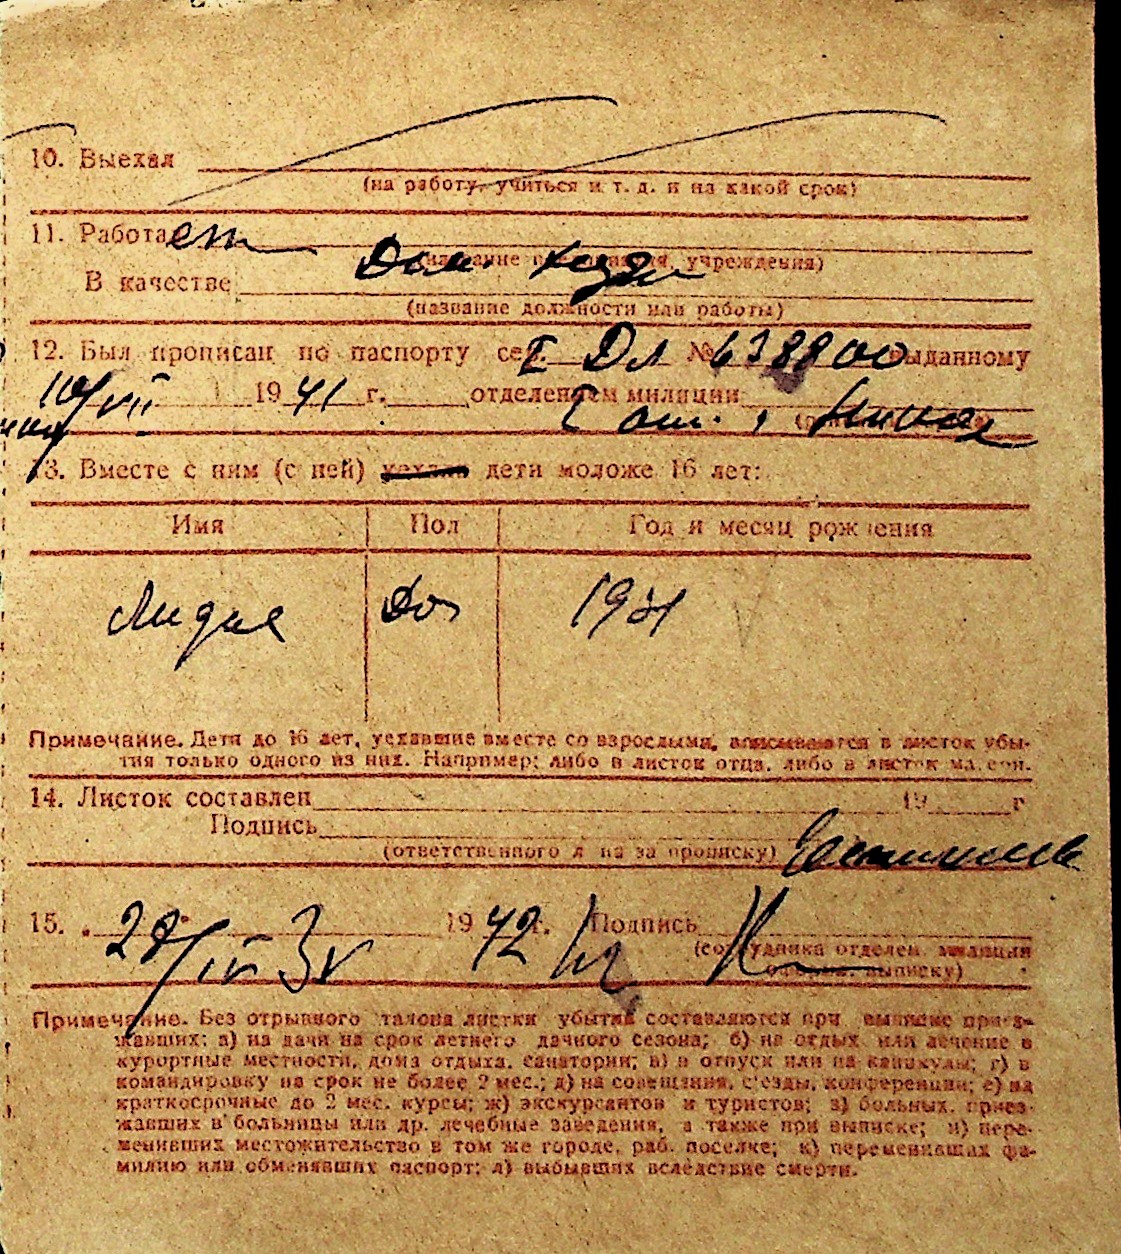 10. Выехал
(на работу, учиться и т. д. и на какой срок)
11. Работает
Дом. хоз.
(название предприятия, учреждения)
В качестве
(название должности или работы)
12. Был прописан по паспорту сер. I Дл № 638800 выданному
10/VII 1941 г. отделением милиции
5 отд.
13. Вместе с ним (с ней) уехали дети моложе 16 лет:
Имя Пол Год и месяц рождения
Лидия 1931
Примечание. Дети до 16 лет, уехавшие вместе со взрослыми, вписываются в листок убы-
тия только одного из них. Например: либо в листок отца, либо в листок матери.
14. Листок составлен 19 г
Подпись
(ответственного лица за прописку)
15. 28/IV 1942 г. Подпись
(сотрудника отделен. милиции
выписку)
Примечание. Без отрывного талона листки убытия составляются при выписке приез-
жавших: а) на дачи на срок летнего дачного сезона; б) на отдых или лечение в
курортные местности, дома отдыха, санатории; в) в отпуск или на каникулы; г) в
командировку на срок не более 2 мес.; д) на совещания, съезды, конференции; е) на
краткосрочные до 2 мес. курсы; ж) экскурсантов и туристов; з) больных, приез-
жавших в больницы или др. лечебные заведения, а также при выписке; и) пере-
менивших местожительство в том же городе, раб. поселке; к) переменивших фа-
милию или обменявших паспорт; л) выбывших вследствие смерти.